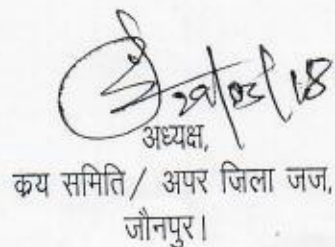 29/03/18
अध्यक्ष,
क्रय समिति/ अपर जिला जज,
जौनपुर।